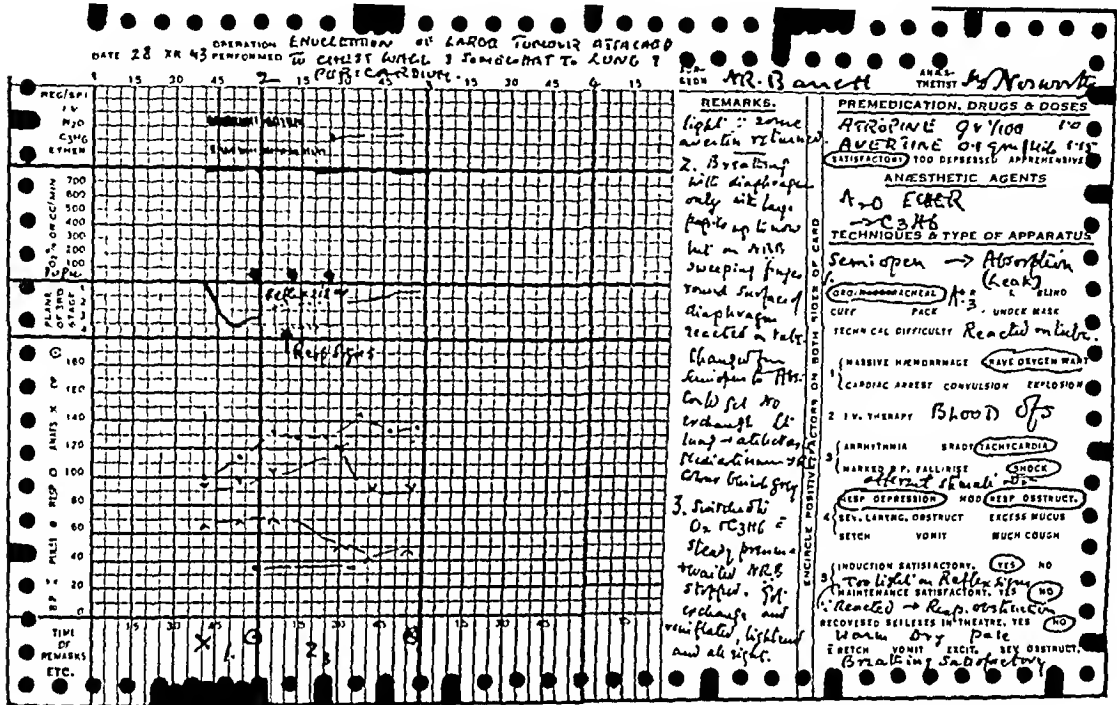 DATE 28 XR 43 OPERATION PERFORMED ENUCLEATION OF LARGE TUMOUR ATTACHED
TO CHEST WALL & SOMEWHAT TO LUNG ?
PERICARDIUM.
15 30 45 2 15 30 45 15 30 45 4 15
SURGEON AR. Barrett ANÆSTHETIST Nosworthy
REG/SPI
I V
N2O
C3H6
ETHER
O2 IN OR CC/MIN
700
600
500
400
300
200
100
Pupil
PLANE OF 3RD STAGE
1
2
3
4
Reflex sign
Resp Signs
BP PULSE RESP ANAES
180
160
140
120
100
80
60
40
20
0
15 30 45 15 30 45 15 30 45 15
TIME OF REMARKS ETC.
X 1. 2 3
REMARKS.
light ∵ some
avertin returned.
2. Breathing
with diaphragm
only with large
pupils up to now
but on ARB
sweeping finger
round surface of
diaphragm
reacted on tube.
Changed from
semiopen to Abs.
Could get no
exchange
lung
mediastinum
3. Switched to
O2 + C3H6
steady pressure
+ waited ARB
stopped. Got
exchange and
reinflated, lightened
and all right.
ENCIRCLE POSITIVE FACTORS ON BOTH SIDES OF CARD
PREMEDICATION, DRUGS & DOSES
ATROPINE gr 1/100
AVERTINE 0.1 gm/kilo
SATISFACTORY TOO DEPRESSED APPREHENSIVE
ANÆSTHETIC AGENTS
N2O ETHER
→ C3H6
TECHNIQUES & TYPE OF APPARATUS
Semiopen → Absorption
(Leak)
BLIND
CUFF PACK UNDER MASK
TECHNICAL DIFFICULTY Reacted on tube.
1 MASSIVE HÆMORRHAGE GAVE OXYGEN WARD
CARDIAC ARREST CONVULSION EXPLOSION
2 I.V. THERAPY BLOOD
3 ARRHYTHMIA BRADY TACHYCARDIA
MARKED B.P. FALL/RISE SHOCK
afferent stimuli
RESP DEPRESSION MOD RESP OBSTRUCT.
4 SEV. LARYNG. OBSTRUCT EXCESS MUCUS
RETCH VOMIT MUCH COUGH
5 INDUCTION SATISFACTORY. YES NO
Too light on Reflex signs
MAINTENANCE SATISFACTORY. YES NO
∵ Reacted → Resp. obstruction
RECOVERED REFLEXES IN THEATRE, YES NO
Warm Dry Pale
RETCH VOMIT EXCIT. SEV OBSTRUCT.
Breathing satisfactory